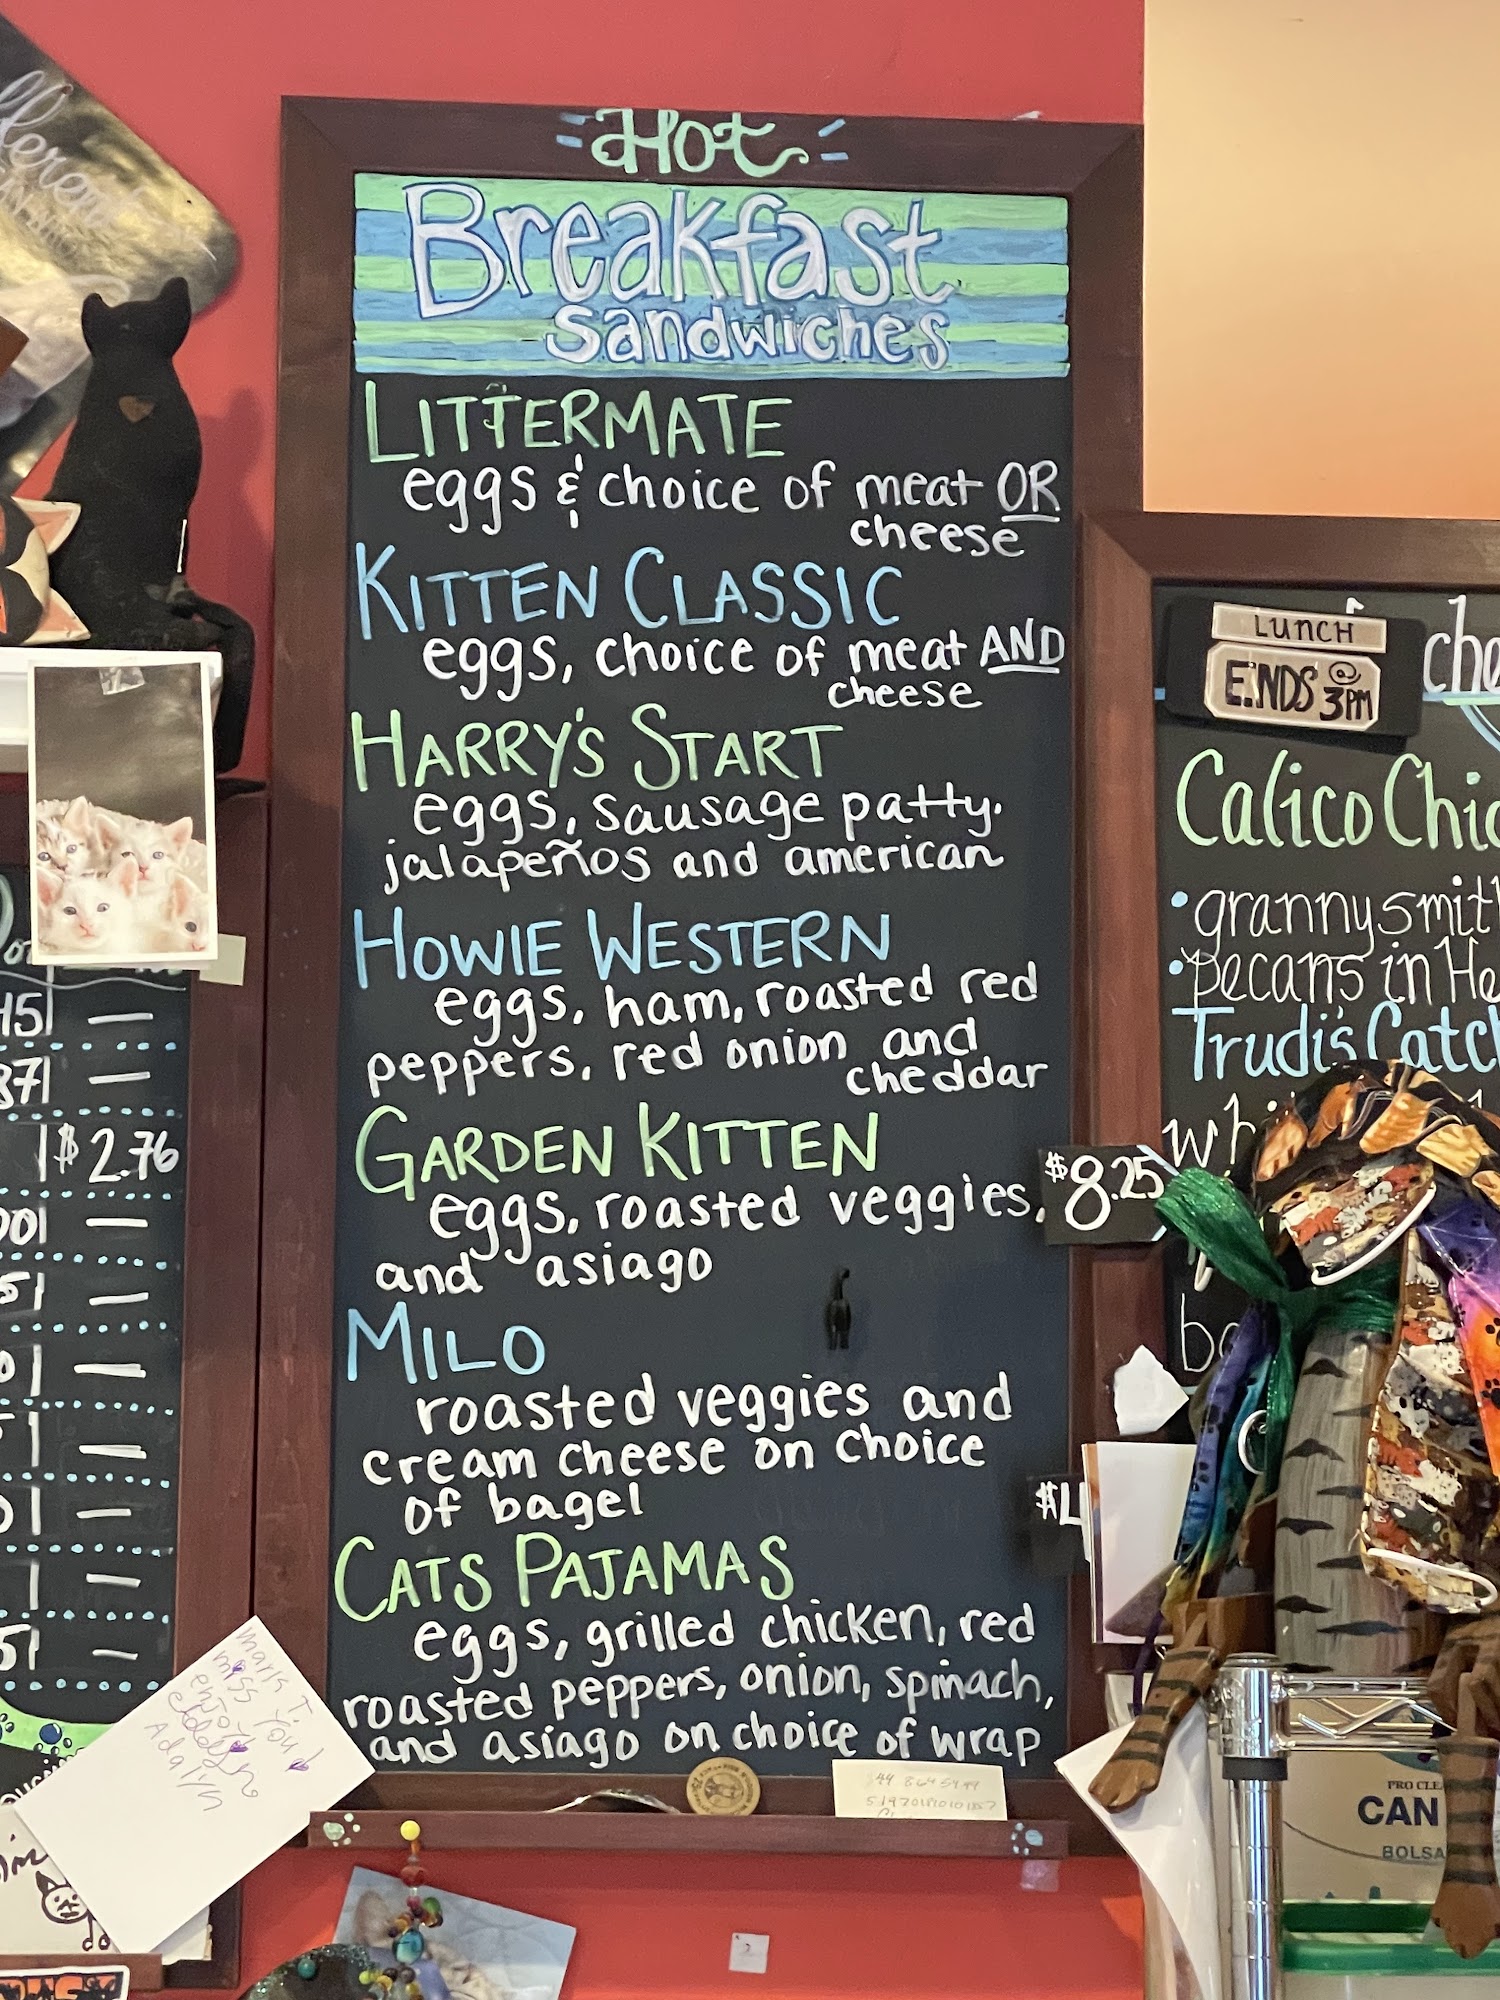 Hot
Breakfast
sandwiches
LITTERMATE
eggs & choice of meat OR
cheese
KITTEN CLASSIC
eggs, choice of meat AND
cheese
HARRY'S START
eggs, sausage patty.
jalapeños and american
HOWIE WESTERN
eggs, ham, roasted red
peppers, red onion and
cheddar
GARDEN KITTEN
eggs, roasted veggies,
and asiago
$8.25
MILO
roasted veggies and
cream cheese on choice
of bagel
CATS PAJAMAS
eggs, grilled chicken, red
roasted peppers, onion, spinach,
and asiago on choice of wrap
LUNCH
ENDS @
3PM
Calico
grannysmith
pecans in
Trudi's
$2.76
mark T.
miss you
enjoy
Adalyn
PRO
CAN